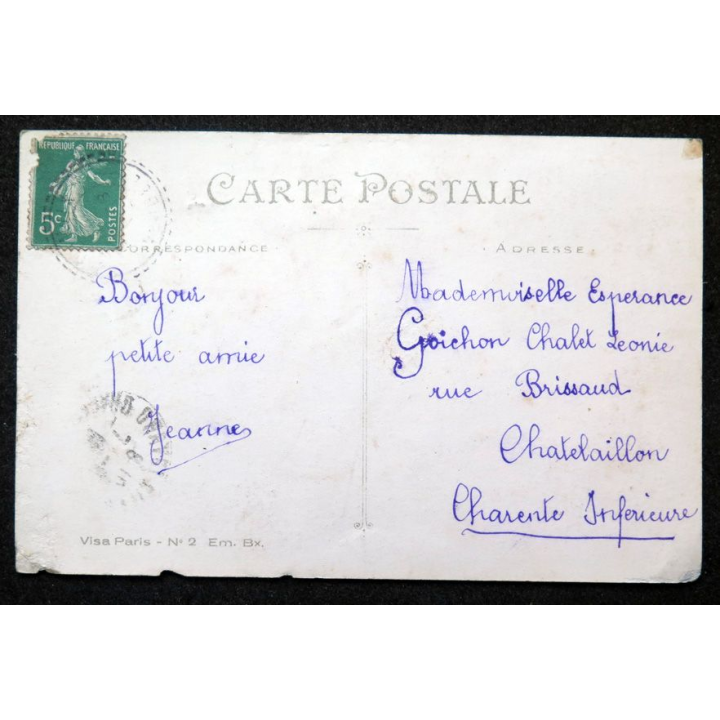 REPUBLIQUE FRANÇAISE
5c
POSTES
CARTE POSTALE
CORRESPONDANCE
ADRESSE
Bonjour
petite amie
Jeanne
Mademoiselle Esperance
Goichon Chalet Leonie
rue Brissaud
Chatelaillon
Charente Inferieure
Visa Paris - No 2 Em. Bx.